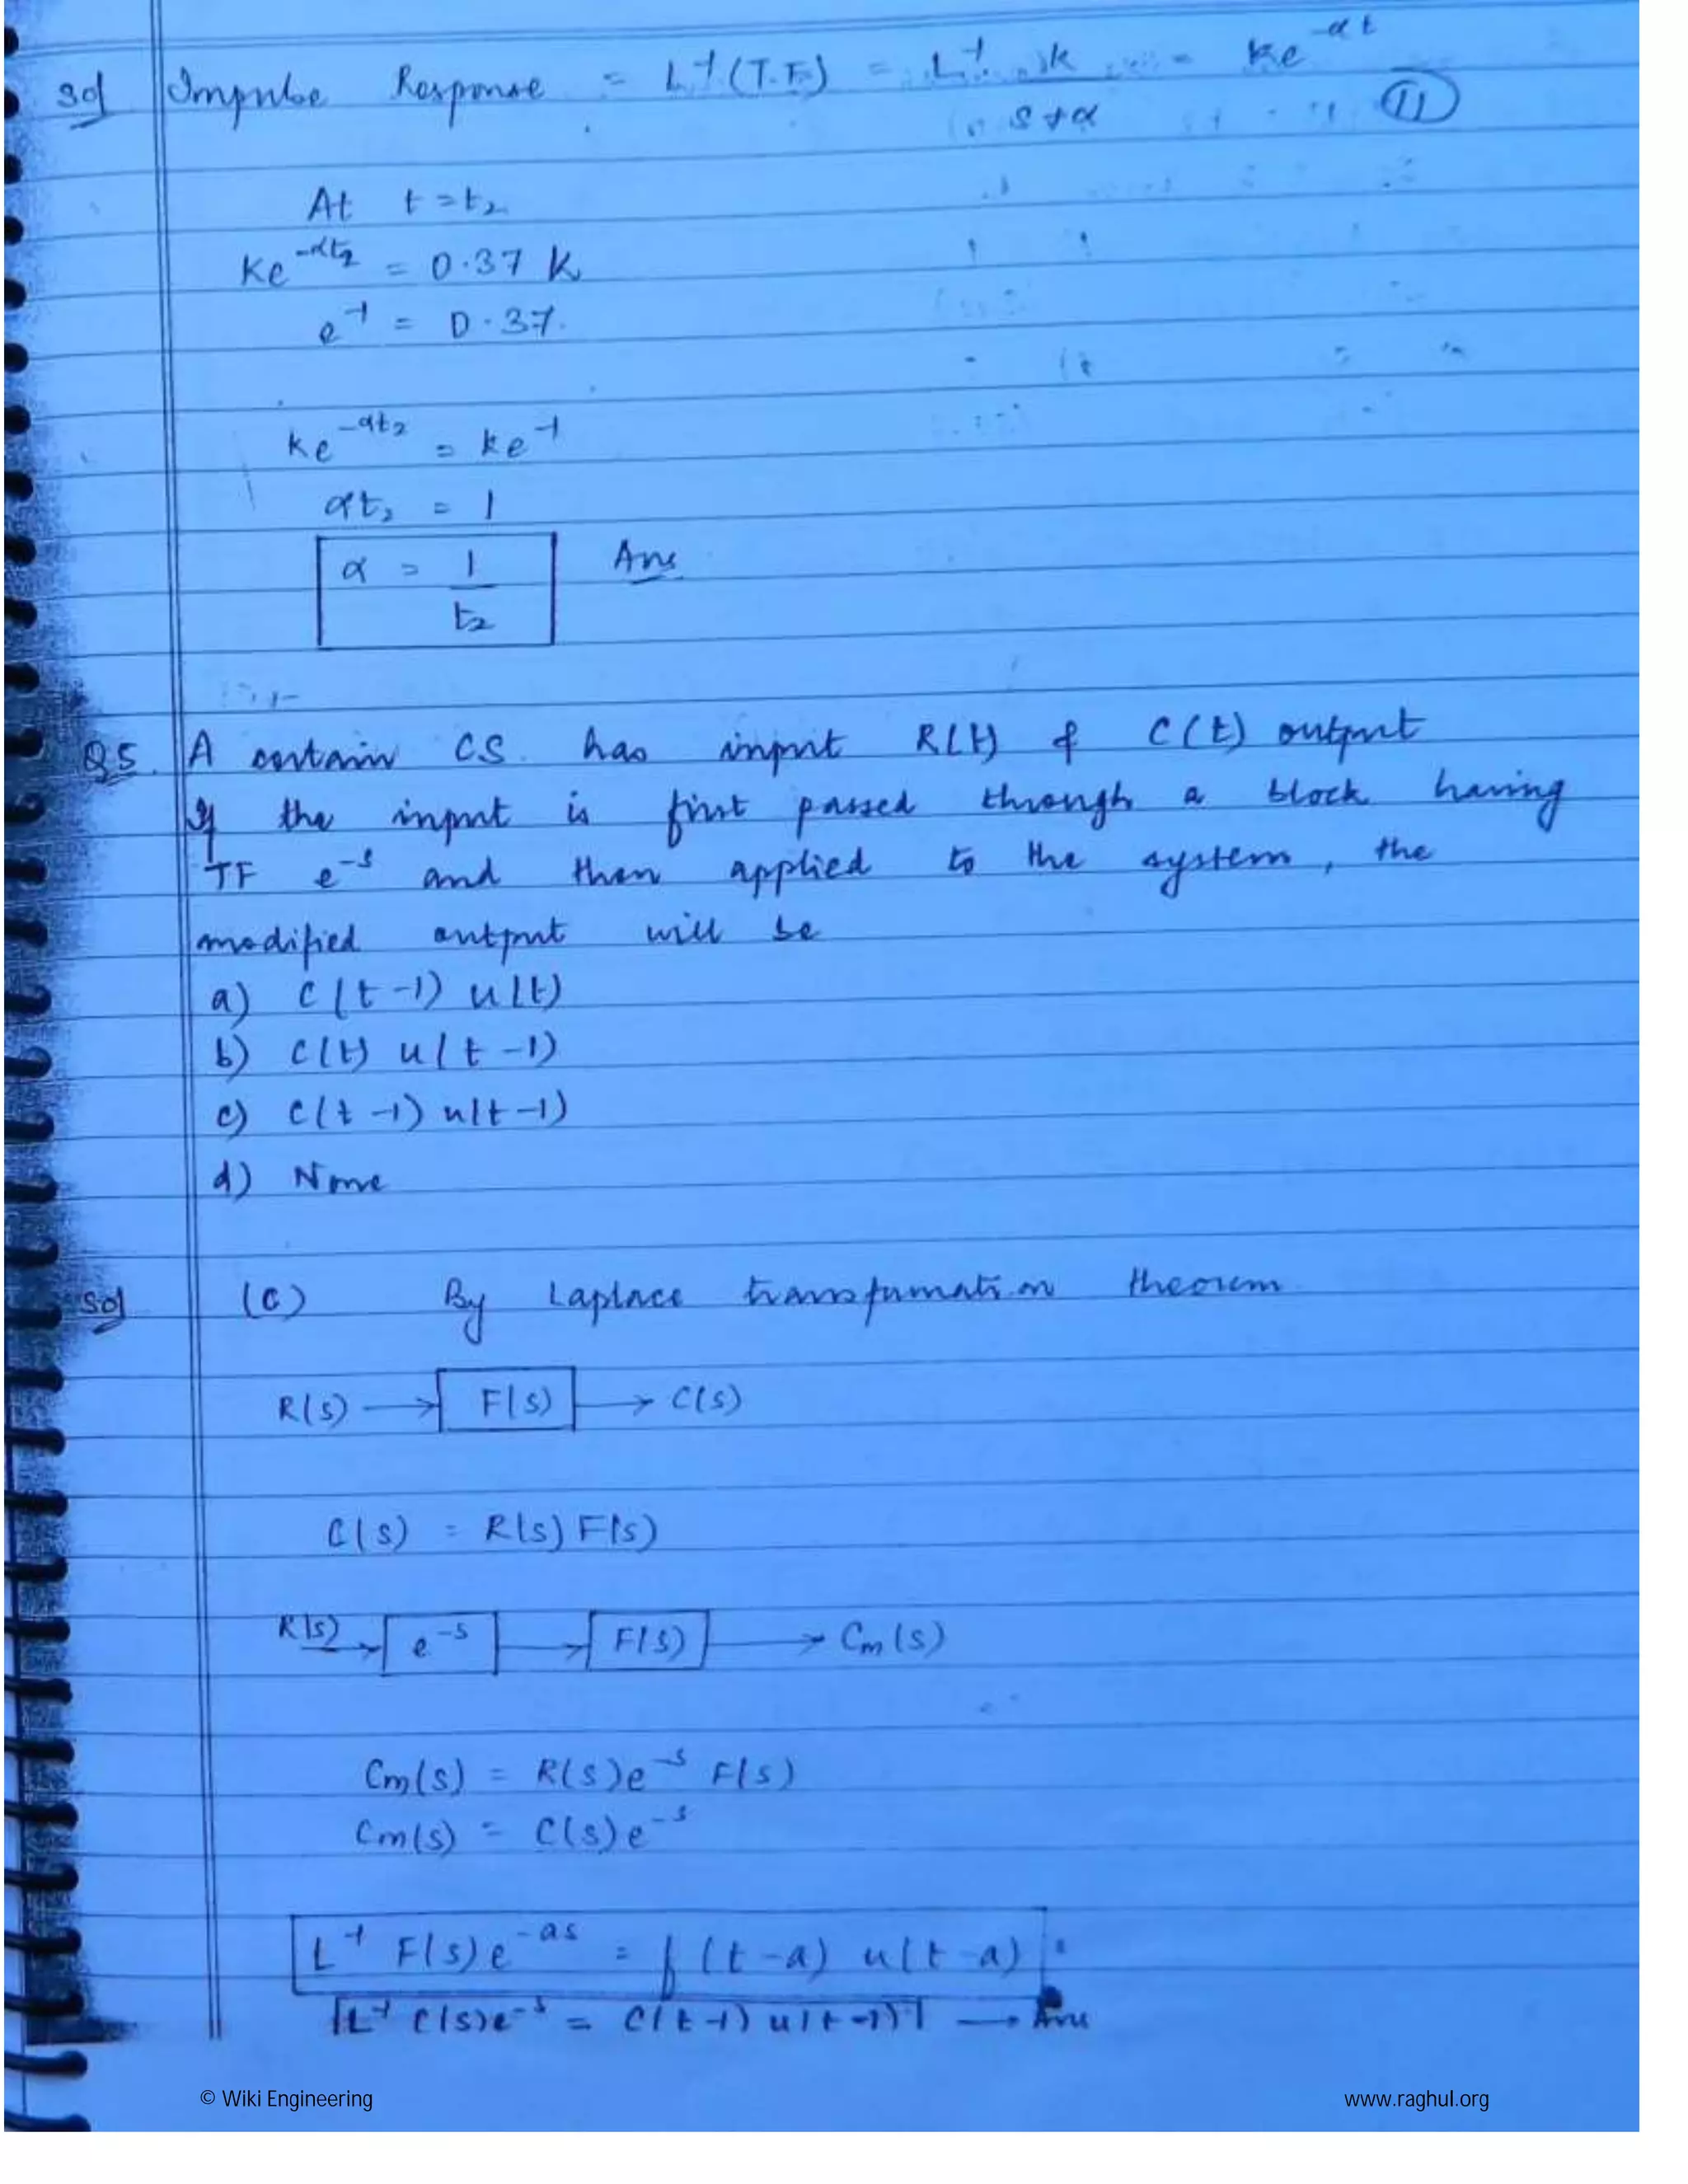 Sol Impulse Response = L⁻¹(T.F.) = L⁻¹ k/(s+α) = ke^(-αt)
(11)
At t = t₂
Ke^(-αt₂) = 0.37 k
e⁻¹ = 0.37.
ke^(-αt₂) = ke⁻¹
αt₂ = 1
α = 1/t₂ Ans
Q5. A certain CS. has input R(t) & C(t) output
If the input is first passed through a block having
TF e^(-s) and then applied to the system, the
modified output will be
a) C(t-1) u(t)
b) C(t) u(t-1)
c) C(t-1) u(t-1)
d) None
Sol (C) By Laplace transformation theorem
R(s) → F(s) → C(s)
C(s) = R(s) F(s)
R(s) → e^(-s) → F(s) → Cm(s)
Cm(s) = R(s)e^(-s) F(s)
Cm(s) = C(s)e^(-s)
L⁻¹ F(s)e^(-as) = f(t-a) u(t-a)
L⁻¹ C(s)e^(-s) = C(t-1) u(t-1) → Ans
© Wiki Engineering www.raghul.org